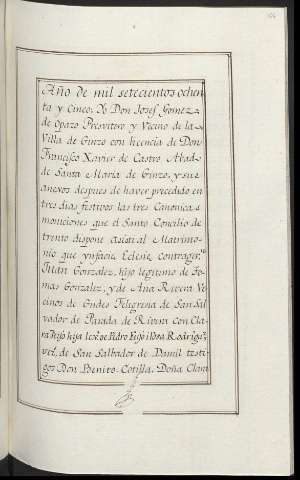 Año de mil setecientos ochen
ta y cinco. Yo Don Josef Gomez
de Opazo Presvitero y Vicino de la
Villa de Ginzo con licencia de Don
Francisco Xavier de Castro Abad
de Santa Maria de Ginzo, y sus
anexos despues de haver precedido en
tres dias festivos las tres Canonicas
moniciones que el Santo Concilio de
trento dispone asisti al Matrimo-
nio que ynfacie Eclesie contragir.ⁿ
Juan Gonzalez, hijo legitimo de To
mas Gonzalez, y de Ana Rivera Ve
cinos de Gudes Feligresia de San Sal
vador de Parada de Rivera con Cla-
ra Feijo hija de Pedro Feijo Rodriga.ᶻ
de San Salbador de Damil testi
gos Don Benito Cotilla, Doña Clara